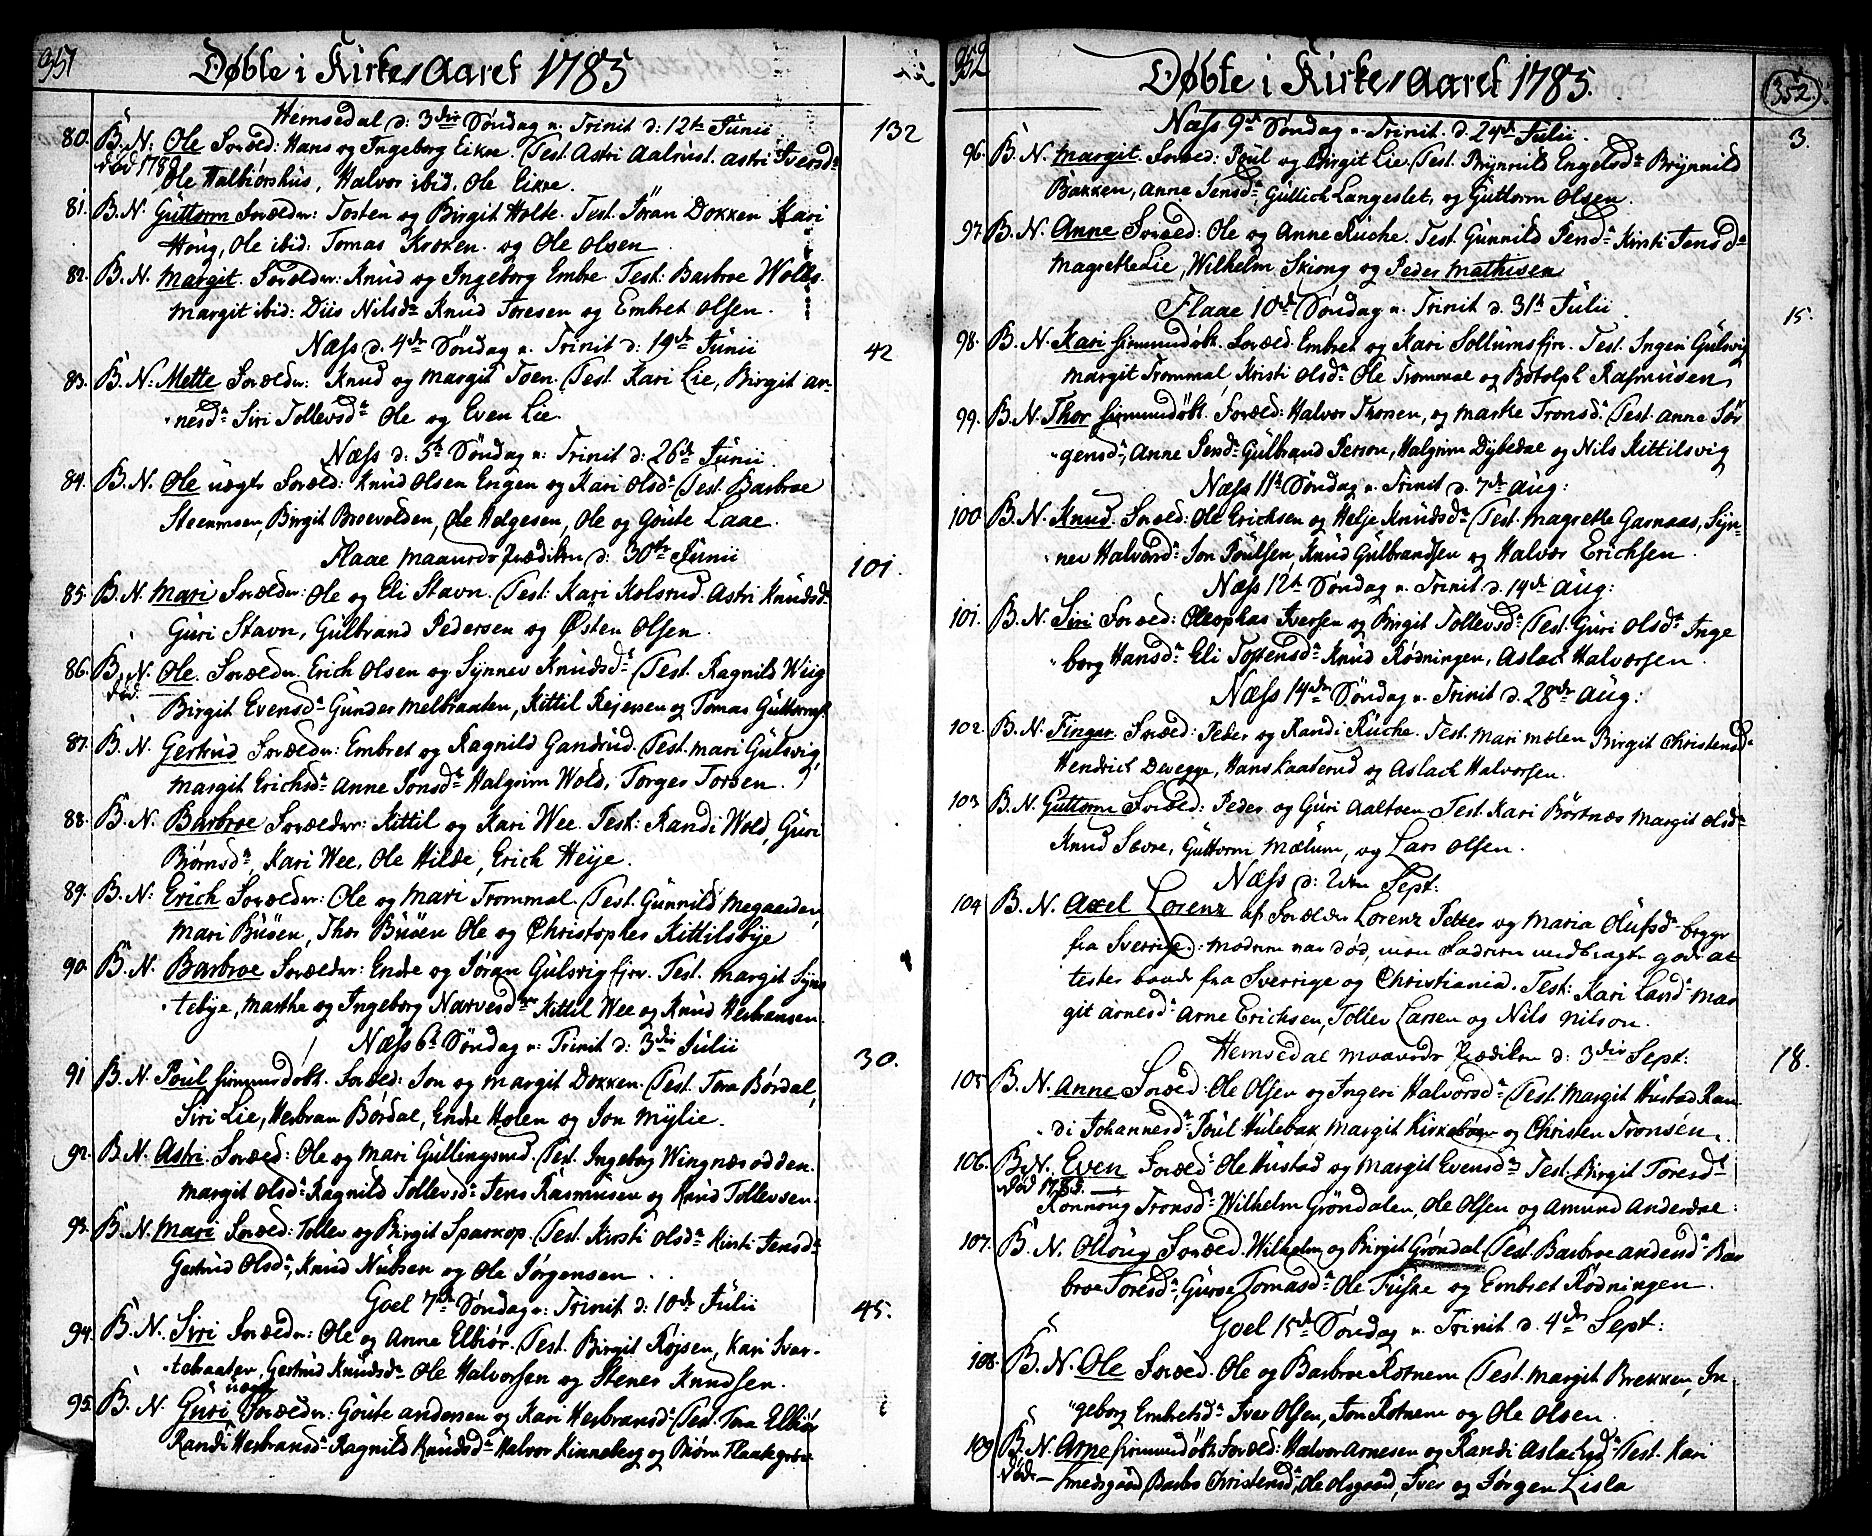 351
Døbte i Kirke Aaret 1785
Hemsedal d: 3die Søndag n: Trinit d: 12te Junii 132
80. B. N: Ole Foræld: Hans og Ingeborg Eikre. Test. Astri Aalrust. Astri Iversd.
død 178 Ole Halbiørshus, Halvor ibid, Ole Eikre.
81. B. N. Guttorm Forældr: Tosten og Birgit Holte. Test. Jøran Dokken Kari
Houg, Ole ibid: Tomas Kroken. og Ole Olsen
82. B. N. Margit. Foreldr: Knud og Ingeborg Embre Test: Barbroe Wolds.
Margit ibid: Diis Nilsd. Knud Toresen og Embret Olsen.
Næss d. 4de Søndag n. Trinit d: 19de Junii 42
83. B. N: Mette Forældr: Knud og Margit Toen. Test. Kari Lie, Birgit Ar-
nesd. Siri Tollevsd. Ole og Even Lie.
Næss d: 5te Søndag n: Trinit d: 26de Junii
84. B. N. Ole uægte Foræld: Knud Olsen Engen og Kari Olsd. Test. Barbroe
Steenmoen, Birgit Broevolden, Ole Helgesen, Ole og Goute Laae.
Flaae Maaneds Prædiken d: 30te Junii 101.
85. B. N. Mari Forældr: Ole og Eli Stavn. Test: Kari Kolsrud. Astri Knudsd.
Guri Stavn, Gulbrand Pedersen og Østen Olsen.
86. B. N. Ole. Forældr. Erich Olsen og Synnev Knudsd. Test. Ragnild Wiig
død. Birgit Evensd. Gunder Melbraaten, Kittil Rejersen og Tomas Guttormss.
87. B. N. Gertrud Forældr: Embret og Ragnild Gandrud. Test. Mari Gulsvig,
Margit Erichsd. Anne Jonsd. Halgrim Wold, Torger Torsen.
88. B. N. Barbroe Forældr: Kittil og Kari Wee. Test: Randi Wold, Guri
Biørnsd. Kari Wee, Ole Hilde, Erich Heije.
89. B. N: Erich Forældr: Ole og Mari Trommal. Test. Gunnild Megaarden,
Mari Buøen, Thor Buøen Ole og Christopher Kittilsbye
90. B. N. Barbroe Forældr: Endre og Jøran Gulsvigejer. Test. Margit Synn
tebye, Marthe og Ingeborg Narvesd. Kittil Wee og Knud Herbransen.
Næss 6te Søndag n: Trinit d: 3die Julii 30.
91 B. N. Poul hiemmedøbt. Foræld: Jon og Margit Dokken. Test. Tora Børdal,
Siri Lie, Herbran Børdal, Endre Holen og Jon Mylie.
92. B. N. Astri. Foræld: Ole og Mari Gullingsrud. Test. Ingeborg Wingnæsodden.
Margit Olsd. Ragnild Tollevsd. Jens Rasmusen og Knud Tollevsen.
93. B. N. Mari Foræld: Tollev og Birgit Sparkop. Test. Kirsti Olsd. Kirsti Jensd.
Gertrud Olsd., Knud Nubsen og Ole Jørgensen.
Goel 7de Søndag n: Trinit d: 10de Julii 45.
94. B. N. Siri Forældr: Ole og Anne Elbiør. Test. Birgit Røjsen, Kari Svar-
tebraaten, Gertrud Knudsd. Ole Halvorsen og Stener Knudsen.
95. B. N. Guri uægte Forældr: Goute Andersen og Kari Herbransd. Test. Tora Elbiør
Randi Herbransd. Ragnild Knudsd. Halvor Kinneberg og Biørn Flaakgrøv
352
Døbte i Kirke Aaret 1785. 352
Næss 9de Søndag n. Trinit. d. 24de Julii. 3.
96. B. N. Margit. Foræld: Poul og Birgit Lie. Test. Brynnild Engelsd. Brynnild
Bakken, Anne Jensd. Gullich Langeslet, og Guttorm Olsen.
97 B. N. Anne Foræld: Ole og Anne Ruche. Test. Gunnild Jensd. Kirsti Jensd.
Magrethe Lie, Wilhelm Skiong og Peder Mathisen
Flaae 10de Søndag n. Trinit d. 31te Julii. 15.
98. B. N. Kari hiemmedøbt. Foræld. Embret og Kari Sollumsejer. Test. Ingeri Gulsvig
Margit Trommal, Kristi Olsd. Ole Trommal og Botolph Rasmusen,
99. B. N. Thor hiemmedøbt. Foræld: Halvor Thorsen, og Marthe Tronsd. Test. Anne Jør
gensd., Anne Pensd. Gulbrand Person, Halgrim Dybedal og Nils Kittilsvig
Næss 11te Søndag n. Trinit d. 7de Aug:
100 B. N. Knud. Foræld: Ole Erichsen og Helje Knudsd. Test. Magrethe Garnaas, Syn-
nev Halvorsd. Jon Poulsen, Knud Gulbrandsen og Halvor Erichsen.
Næss 12te Søndag n. Trinit d. 14de Aug:
101. B. N. Siri Foræld: Oleophas Iversen og Birgit Tollevsd. Test. Guri Olsd. Inge
borg Hansd. Eli Tostensd. Knud Rødningen, Aslach Halvorsen.
Næss 14de Søndag n. Trinit d. 28de Aug:
102 B. N. Finger. Foræld: Peder og Randi Ruche. Test. Mari Mælen Birgit Christensd.
Hendrich Devegge, Hans Kaaterud og Aslach Halvorsen.
103 B. N. Guttorm Foræld: Peder og Guri Aaltven. Test. Kari Børtnæs Margit Olsd.
Knud Sævre, Guttorm Mælum, og Lars Olsen.
Næss d: 2den Sept:
104 B. N. Axel Lorenz af Forældr Lorenz Petter og Maria Olufsd. begge
fra Sverrig: Moderen var død, men Faderen medbragte gode at
tester baade fra Sverrige og Christiania. Test: Kari Land. Mar
git Arnesd. Arne Erichsen, Tollev Larsen og Nils Nilson.
Hemsedal Maaneds Prædiken d: 3die Sept: 18.
105 B. N. Anne Foræld: Ole Olsen og Ingeri Halvorsd. Test. Margit Hustad Ran
di Johannesd. Poul Hulebak Margit Kirkebøen og Christen Tronsen.
106. B. N. Even Foræld: Ole Hustad og Margit Evensd. Test. Birgit Toresd.
død 1785. Rønnoug Tronsd. Wilhelm Grøndalen, Ole Olsen og Amund Anderdal:
107. B. N. Olloug Foræld. Wilhelm og Birgit Grøndal Test. Barbroe Andersd. Bar
broe Toresd., Guroe Tomasd. Ole Fuske og Embret Rødningen.
Goel 15de Søndag n. Trinit. d. 4de Sept:
108. B. N. Ole Foræld. Ole og Barbroe Rotnem Test. Margit Brekken, In
geborg Embretsd. Iver Olsen, Jon Rotnem og Ole Olsen.
109 B. N. Arne hiemmedøbt. Foræld: Halvor Arnesen og Randi Aslachsd. Test. Kari
død. Smedsgaard, Barbro Christensd. Ole Olsgaard, Iver og Jørgen Lisla